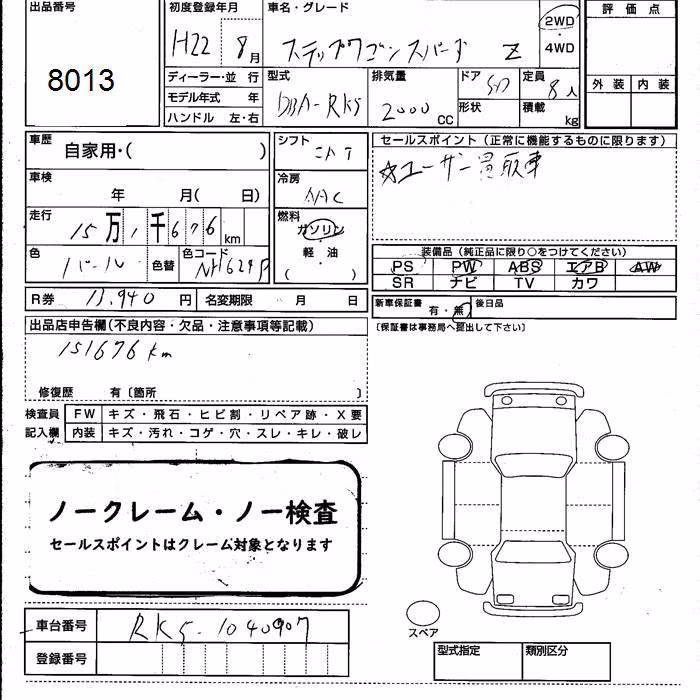 出品番号
8013
初度登録年月
H22 8月
車名・グレード
ステップワゴンスパーダ Z
2WD
・
4WD
評価点
外装 内装
ディーラー・並 行
モデル年式 年
ハンドル 左・右
型式
DBA-RK5
排気量
2000 cc
ドア
5D
形状
定員
8人
積載
kg
車歴
自家用・( )
車検
年 月( 日)
走行
15万1千676km
色
パール
色替
色コード
NH624P
シフト
冷房
AAC
燃料
ガソリン
軽・油
( )
セールスポイント(正常に機能するものに限ります)
☆ユーザー買取車
装備品(純正品に限り○をつけてください)
PS PW ABS エアB AW
SR ナビ TV カワ
R券 11,940円 名変期限 月 日
新車保証書 有・無
後日品
〔保証書は事務局へ提出して下さい〕
出品店申告欄(不良内容・欠品・注意事項等記載)
151676km
修復歴 有〔箇所 〕
検査員 FW キズ・飛石・ヒビ割・リペア跡・X要
記入欄 内装 キズ・汚れ・コゲ・穴・スレ・キレ・破レ
ノークレーム・ノー検査
セールスポイントはクレーム対象となります
車台番号 RK5-1040907
登録番号
スペア
型式指定 類別区分